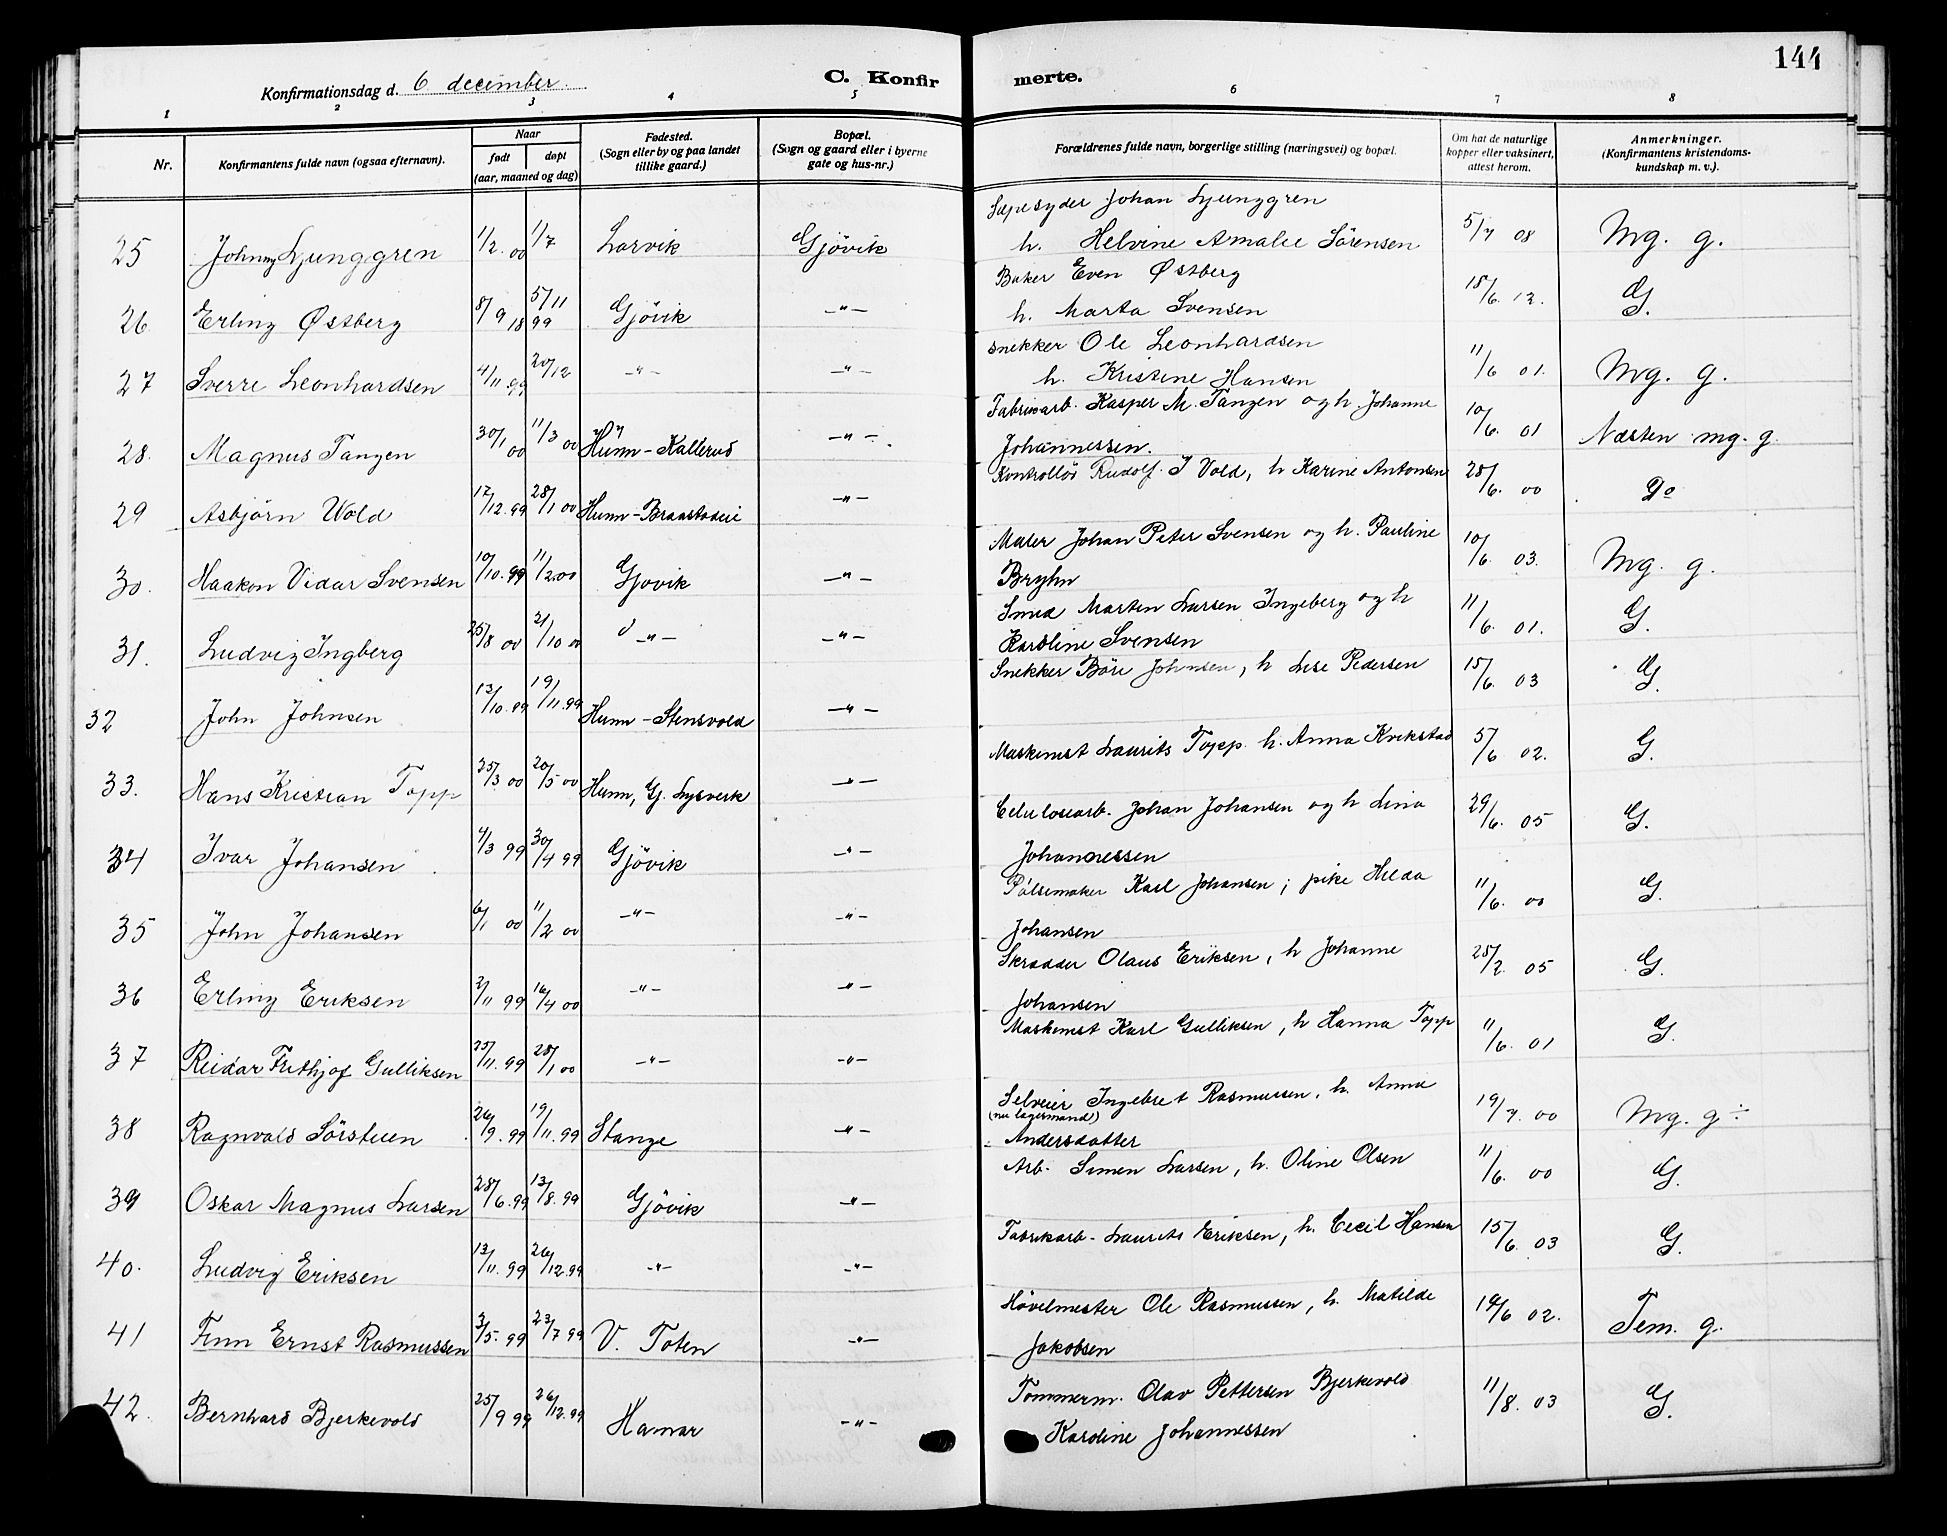 144
Konfirmationsdag d. 6 december
C. Konfirmerte.
1 2 3 4 5 6 7 8
Nr. Konfirmantens fulde navn (ogsaa efternavn). Naar født døpt (aar, maaned og dag) Fødested. (Sogn eller by og paa landet tillike gaard.) Bopæl. (Sogn og gaard eller i byerne gate og hus-nr.) Forældrenes fulde navn, borgerlige stilling (næringsvei) og bopæl. Om hat de naturlige kopper eller vaksinert, attest herom. Anmerkninger. (Konfirmantens kristendoms-kundskap m. v.).
25 Johnny Ljunggren 1/2 00 1/7 Larvik Gjövik Sæpesyder Johan Ljunggren h. Helvine Amalie Sörensen 5/7 08 Mg. g.
26 Erling Østberg 8/9 18 5/11 99 Gjövik -"- Baker Even Østberg h. Marta Svensen 18/6. 12. G.
27 Sverre Leonhardsen 4/11 99 20/12 -"- -"- Snekker Ole Leonhardsen h. Kristine Hansen 11/6 01. Mg. g.
28. Magnus Tangen 30/1 00 11/3 00 Hunn-Kallerud -"- Fabrikarb. Kasper M. Tangen og h. Johanne Johannessen. 10/6. 01 Næsten mg. g.
29 Asbjörn Wold 17/12.99 28/1 00 Hunn-Braastadlii -"- Kontrollör Rudolf J Vold, h Karine Antonsen 28/6. 00 Do
30. Haakon Vidar Svensen 10/10.99 11/2 00 Gjovik -"- Maler Johan Peter Svensen og h. Pauline Bryhn 10/6 03. Mg. g.
31. Ludvig Ingberg 25/8 00 21/10 00 -"- -"- Smed Marten Larsen Ingeberg og h Karoline Svensen 11/6. 01. G.
32 John Johnsen 13/10.99 19/11.99 Hunn-Stensvold -"- Snekker Böre Johnsen, h Lise Pedersen 15/6. 03 G.
33. Hans Kristian Topp 25/3 00 20/5 00 Hunn, Gj. Lysverk -"- Maskinist Laurits Topp. h. Anna Kvikstad 5/6 02. G.
34 Ivar Johansen 4/3 99 30/4 99 Gjövik -"- Celulosearb. Johan Johansen og h Lina Johannessen 29/6. 05 G.
35 John Johansen 6/1 00 11/2 00 -"- -"- Pölsemaker Karl Johansen; pike Hilda Johansen 11/6. 00 G.
36 Erling Eriksen 2/11 99 16/4 00 -"- -"- Skradder Olaus Eriksen, h Johanne Johansen 28/2. 05 G.
37 Reidar Frithjof Gulliksen 25/11.99 28/1 00 -"- -"- Maskinist Karl Gulliksen, h Hanna Topp 11/6. 01 G.
38 Ragnvald Sörstuen 26/9.99 19/11.99 Stange -"- Selveier Ingebret Rasmussen, h. Anna (nu lagermand) Andersdatter 19/7. 00 Mg. g÷
39 Oskar Magnus Larsen 28/6.99 13/8.99 Gjövik -"- Arb. Simen Larsen, h. Oline Olsen 11/6. 00 G.
40. Ludvig Eriksen 13/11.99 26/12.99 -"- -"- Fabrikarb- Laurits Eriksen, h. Cecil Hansen 15/6. 03 G.
41 Finn Ernst Rasmussen 3/5.99 23/7 99 V. Toten -"- Hövelmester Ole Rasmussen, h. Matilde Jakobsen 14/6 02. Tem. g.
42. Bernhard Bjerkevold 25/9 99 26/12.99 Hamar -"- Tömmerm. Olav Pettersen Bjerkevold Karoline Johannessen 11/8. 03 G.